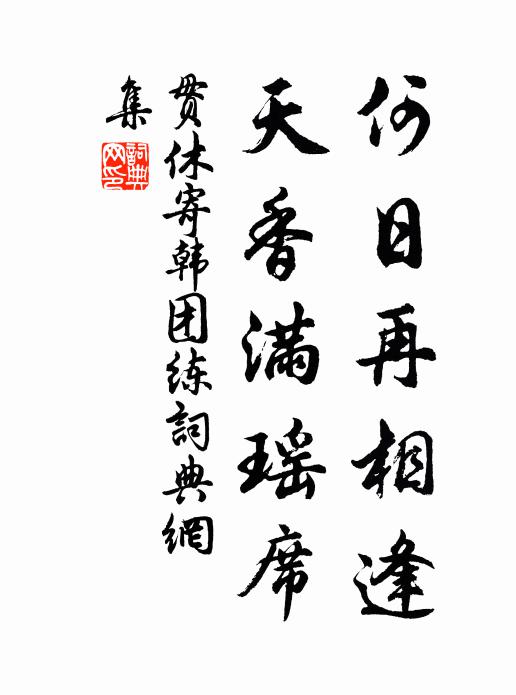 何日再相逢
天香滿瑶席
贯休寄韩团练詞典網
集
詞典网印